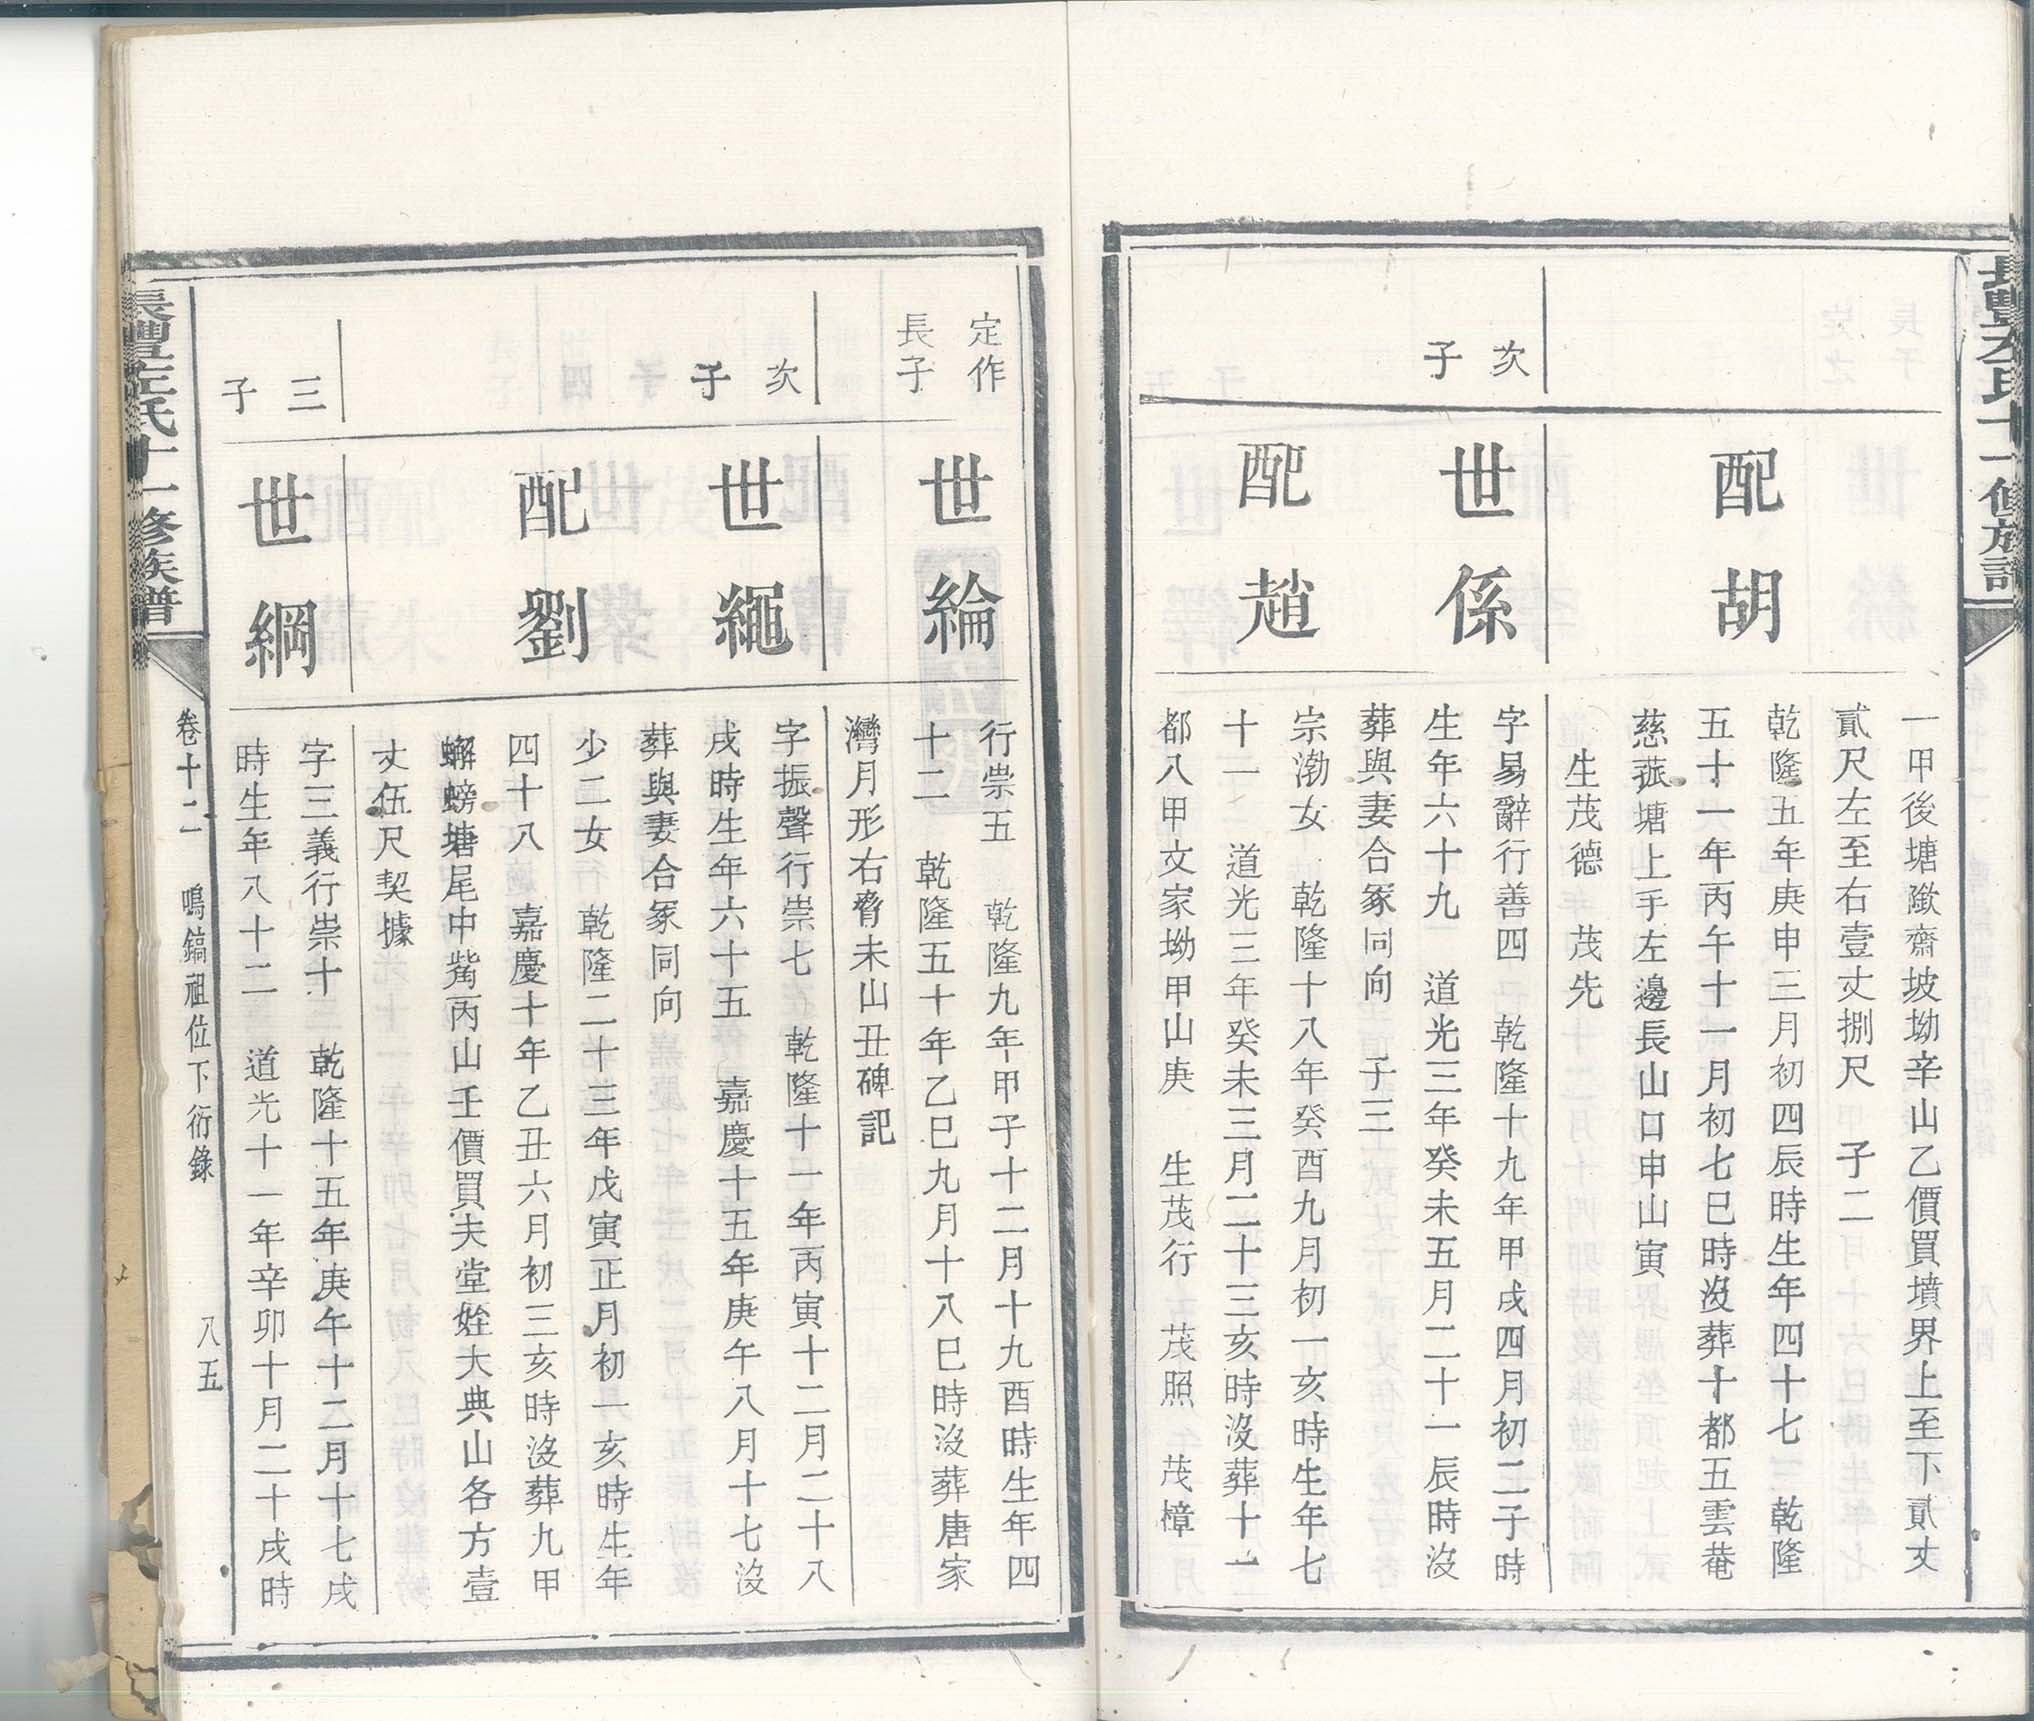 長豐左氏十一修族譜
一甲後塘𡑞齋坡坳辛山乙價買墳界上至下貳丈
貳尺左至右壹丈捌尺　子二
配胡
乾隆五年庚申三月初四辰時生年四十七　乾隆
五十一年丙午十一月初七巳時沒葬十都五雲菴
慈菰塘上手左邊長山口申山寅
生茂德　茂先
次子
世係
字易辭行善四　乾隆十九年甲戌四月初二子時
生年六十九　道光三年癸未五月二十一辰時沒
葬與妻合冢同向　子三
配趙
宗渤女　乾隆十八年癸酉九月初一亥時生年七
十一　道光三年癸未三月二十三亥時沒葬十一
都八甲文家坳甲山庚　生茂行　茂照　茂樟
定作長子
世綸
行崇五　乾隆九年甲子十二月十九酉時生年四
十二　乾隆五十年乙巳九月十八巳時沒葬唐家
灣月形右脅未山丑碑記
次子
世繩
字振聲行崇七　乾隆十一年丙寅十二月二十八
戌時生年六十五　嘉慶十五年庚午八月十七沒
葬與妻合冢同向
配劉
少二女　乾隆二十三年戊寅正月初一亥時生年
四十八　嘉慶十年乙丑六月初三亥時沒葬九甲
螃塘尾中觜丙山壬價買夫堂姪大典山各方壹
丈伍尺契據
三子
世綱
字三義行崇十　乾隆十五年庚午十二月十七戌
時生年八十二　道光十一年辛卯十月二十戌時
長豐左氏十一修族譜
卷十二　鳴鎬祖位下衍錄　八五